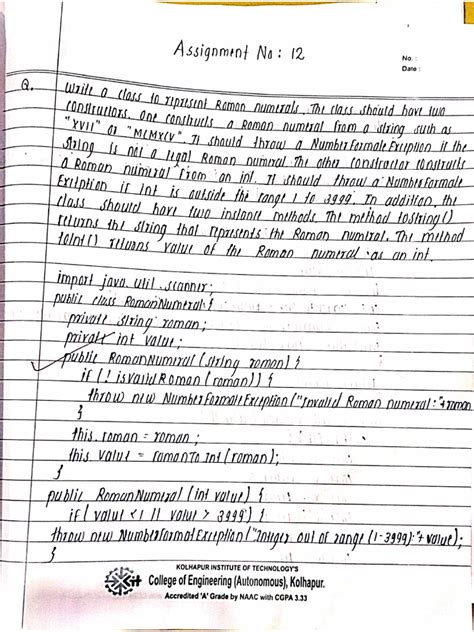 Assignment No: 12
No. :
Date :
Q. Write a class to represent Roman numerals. The class should have two
constructors. One constructs a Roman numeral from a string such as
"XVII" or "MCMXCV". It should throw a NumberFormateException if the
string is not a legal Roman numeral. The other constructor constructs
a Roman numeral from an int. It should throw a NumberFormate
Exception if int is outside the range 1 to 3999. In addition, the
class should have two instance methods. The method toString()
returns the string that represents the Roman numeral. The method
toInt() returns value of the Roman numeral as an int.
import java.util.scanner;
public class RomanNumeral {
private string roman;
private int value;
public RomanNumeral (string roman) {
if (! isValidRoman (roman)) {
throw new NumberFormateException ("Invalid Roman numeral:"+roman
}
this.roman = roman;
this value = romanToInt (roman);
}
public RomanNumeral (int value) {
if ( value <1 || value > 3999) {
throw new NumberFormatException ("Integer out of range (1-3999):"+value);
}
KOLHAPUR INSTITUTE OF TECHNOLOGY'S
Kit College of Engineering (Autonomous), Kolhapur.
Accredited 'A' Grade by NAAC with CGPA 3.33